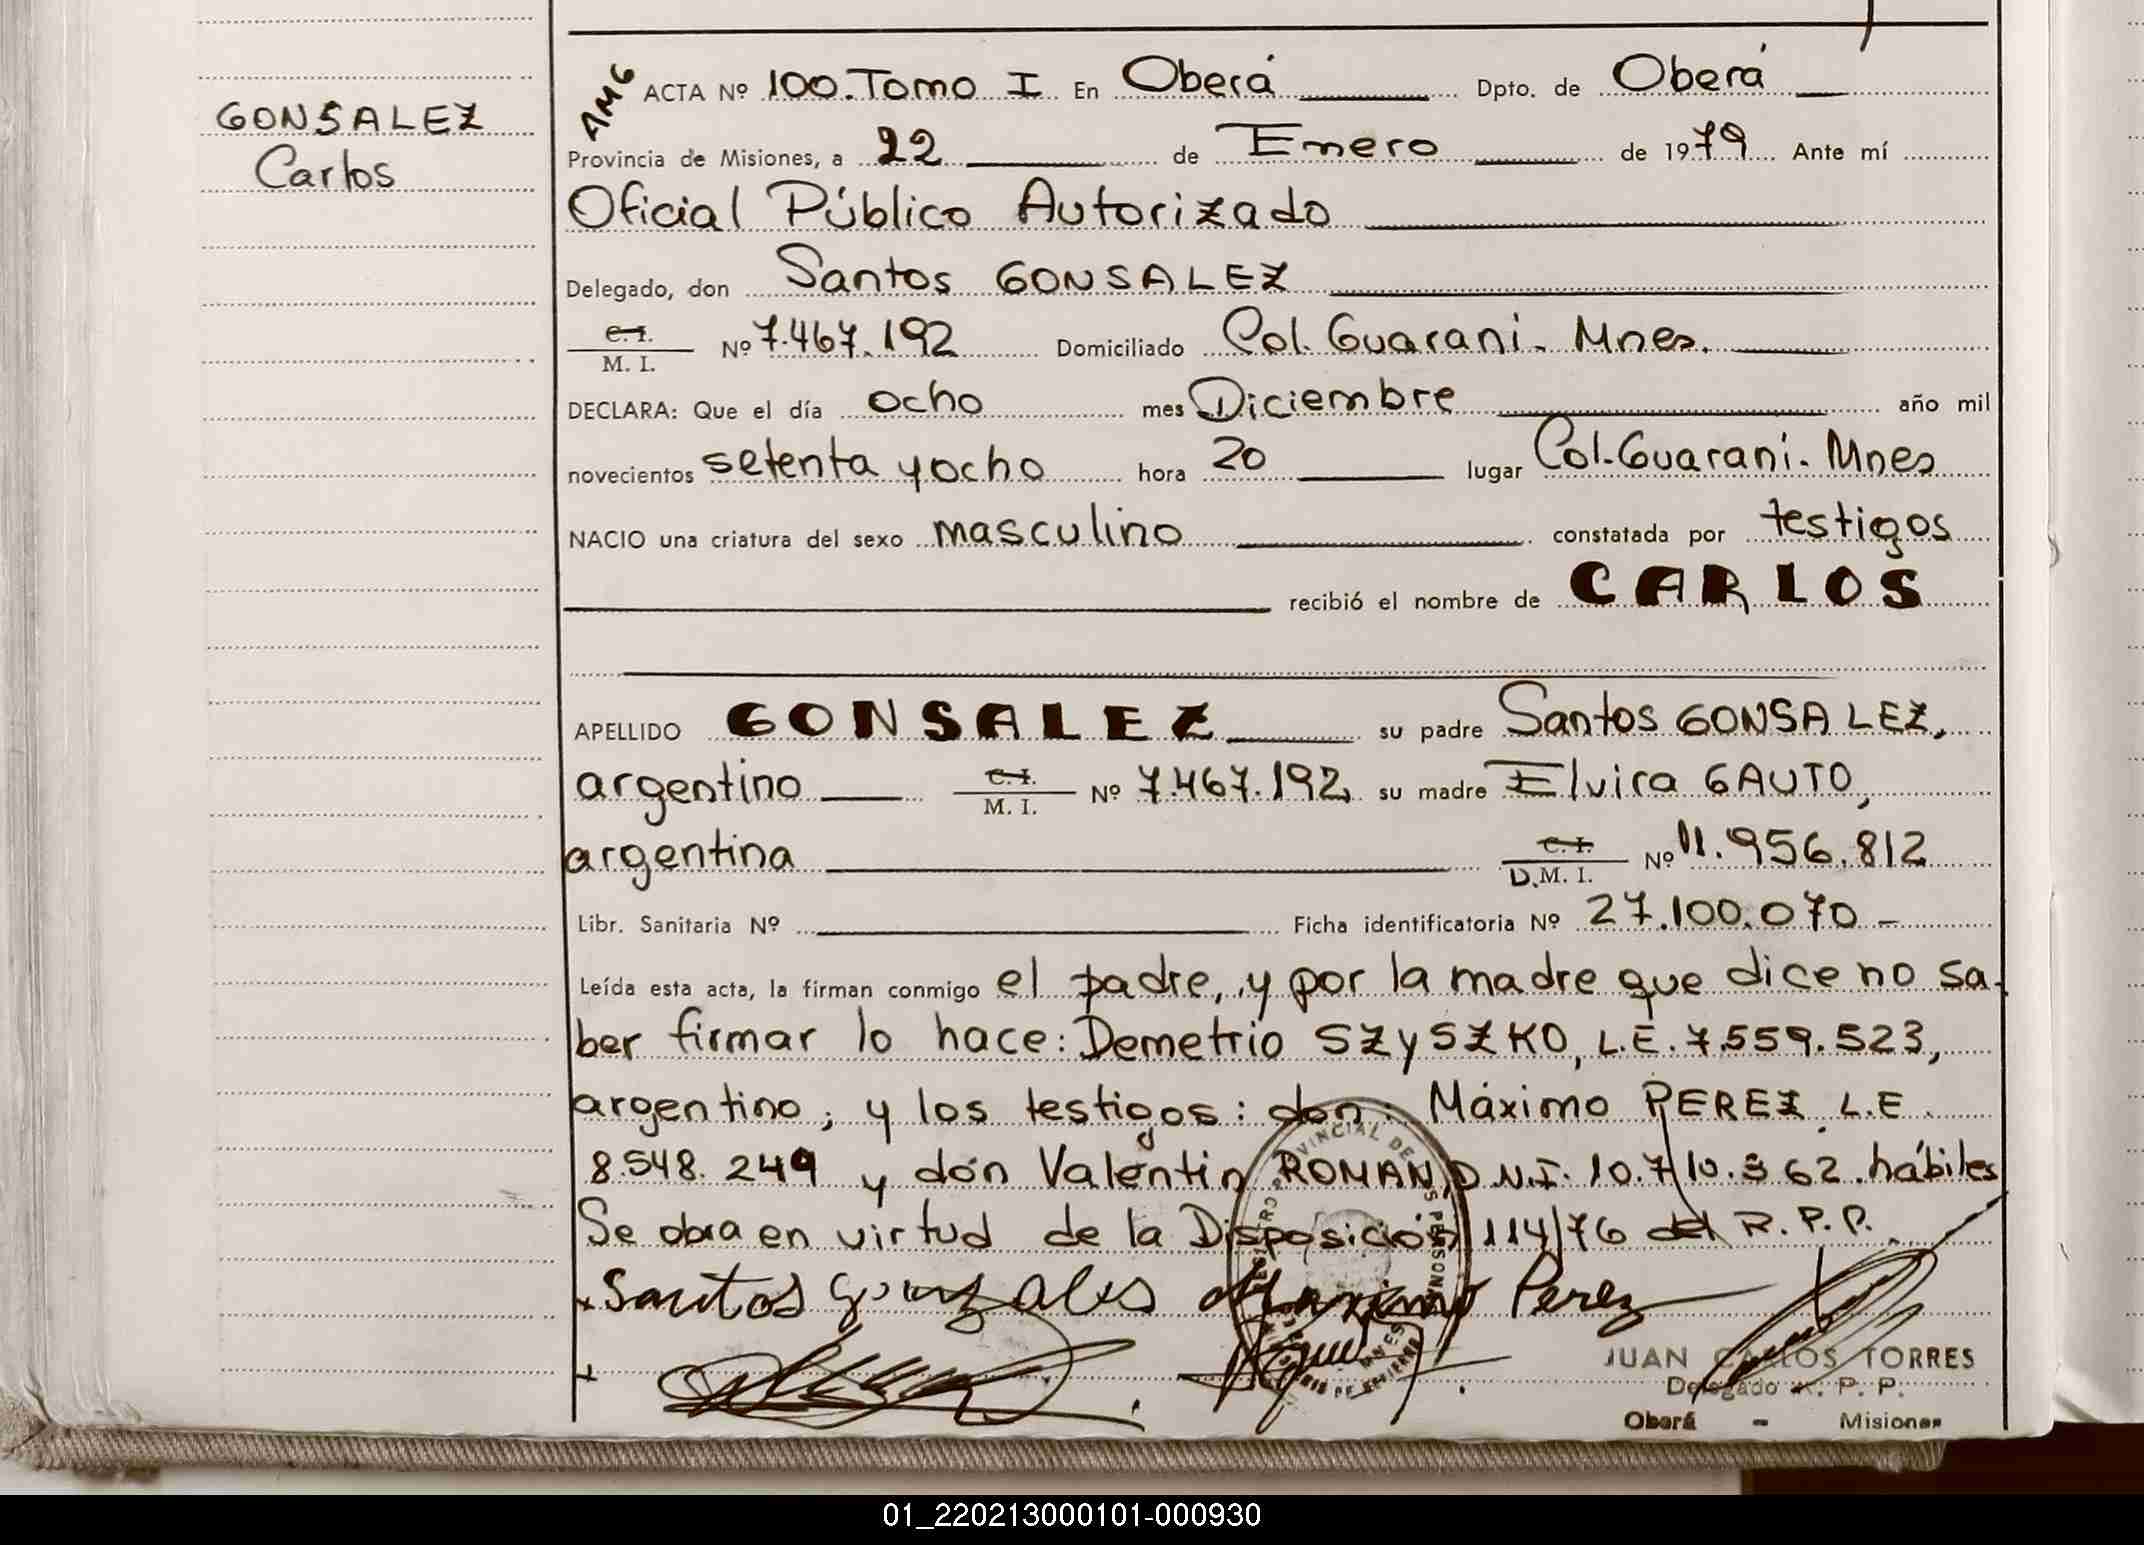 GONSALEZ
Carlos
AMG
ACTA Nº 100. Tomo I En Oberá Dpto. de Oberá
Provincia de Misiones, a 22 de Enero de 1979 Ante mí
Oficial Público Autorizado
Delegado, don Santos GONSALEZ
C. I.
M. I. Nº 7.467.192 Domiciliado Col. Guarani. Mnes.
DECLARA: Que el día ocho mes Diciembre año mil
novecientos setenta y ocho hora 20 lugar Col. Guarani. Mnes
NACIO una criatura del sexo masculino constatada por testigos
recibió el nombre de CARLOS
APELLIDO GONSALEZ su padre Santos GONSALEZ,
argentino C. I. M. I. Nº 7.467.192, su madre Elvira GAUTO,
argentina C. I. D.M. I. Nº 11.956.812
Libr. Sanitaria Nº Ficha identificatoria Nº 27.100.070 -
Leída esta acta, la firman conmigo el padre, y por la madre que dice no sa-
ber firmar lo hace: Demetrio SZYSZKO, L.E. 7.559.523,
argentino; y los testigos: don: Máximo PEREZ L.E.
8.548.249 y don Valentin ROMAN, D.N.I. 10.710.362. hábiles
Se obra en virtud de la Disposición 114/76 del R.P.P.
Santos Gonzales Maximo Perez
JUAN CARLOS TORRES
Delegado R. P. P.
Oberá - Misiones
01_220213000101-000930